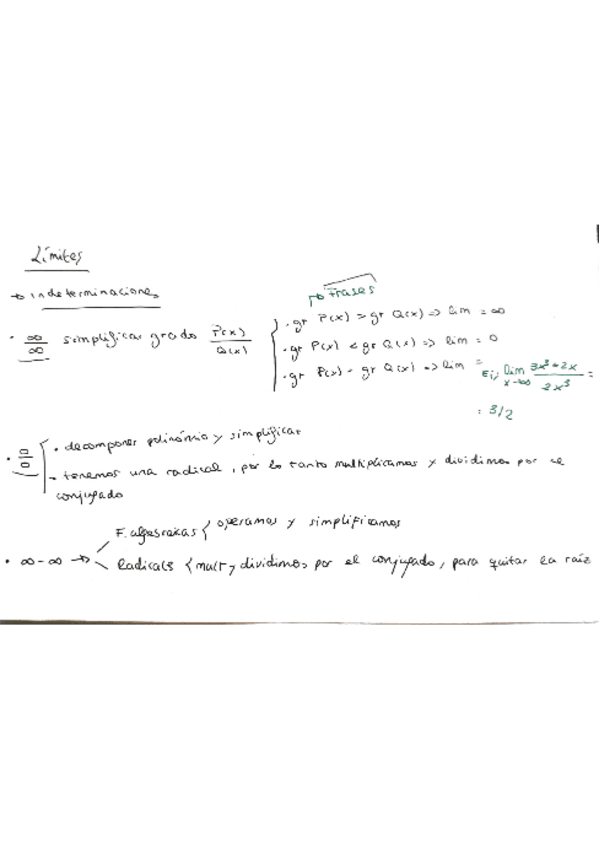 Límites
→ indeterminaciones
→ Frases
· ∞/∞ simplificar grado P(x)/Q(x) { · gr P(x) > gr Q(x) => lim = ∞
· gr P(x) < gr Q(x) => lim = 0
· gr P(x) = gr Q(x) => lim = Ej, lim x→∞ 3x³+2x / 2x³ =
= 3/2
· 0/0 { · decomponer polinómio y simplificar
- tenemos una radical, por lo tanto multiplicamos y dividimos por el
conjugado
F. algebraicas { operamos y simplificamos
· ∞-∞ →
Radicals { mult y dividimos por el conjugado, para quitar la raíz